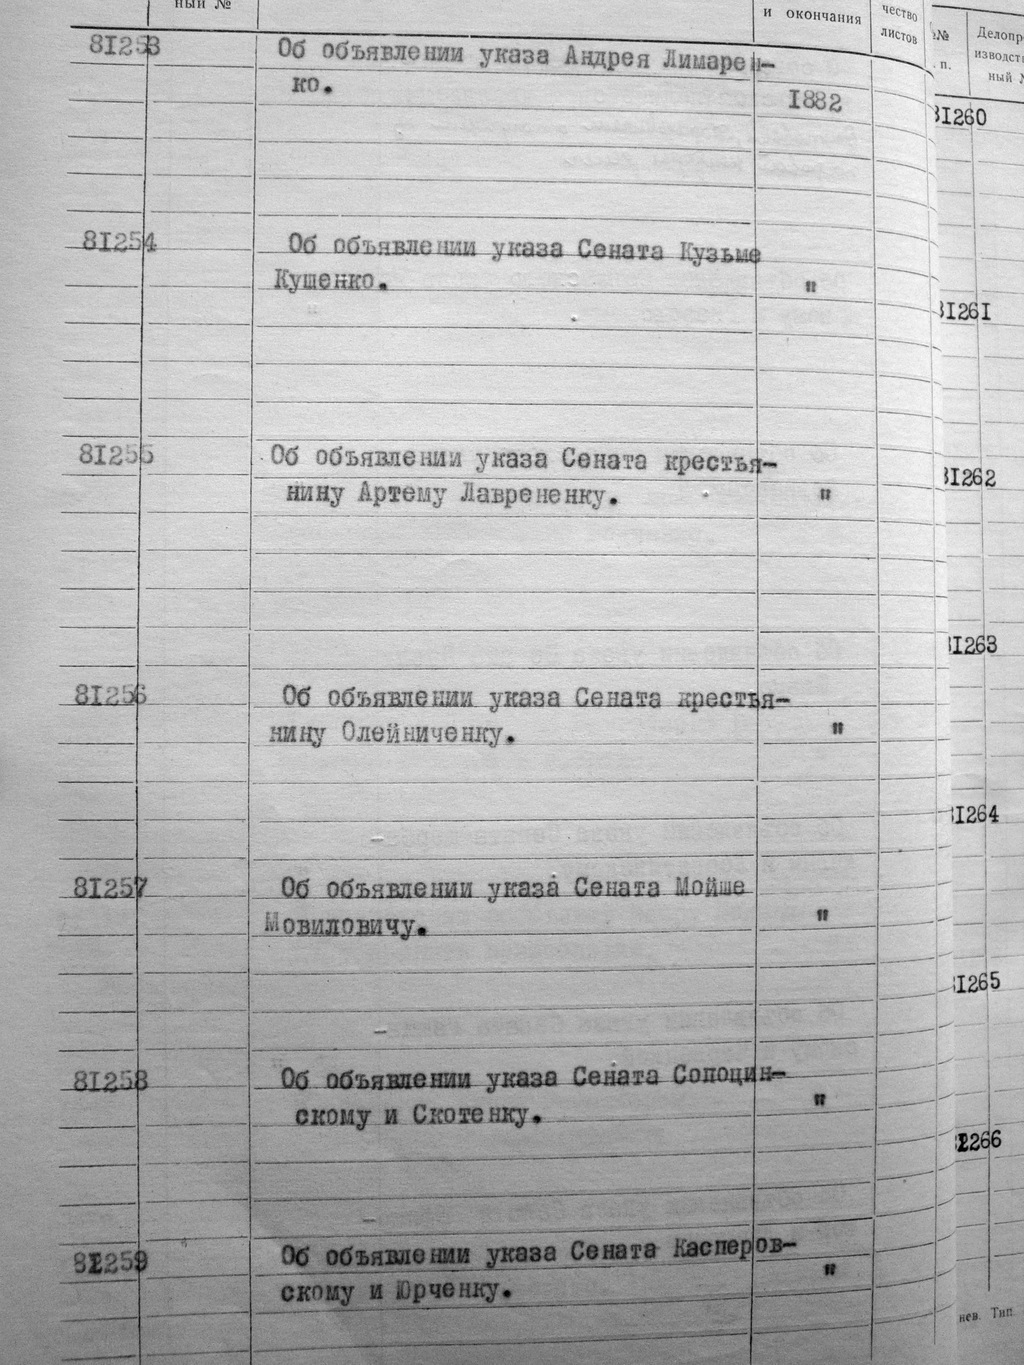 ный №
и окончания
чество
листов
81253
Об объявлении указа Андрея Лимарен-
ко.
1882
81254
Об объявлении указа Сената Кузьме
Кушенко.
"
81255
Об объявлении указа Сената крестья-
нину Артему Лаврененку.
"
81256
Об объявлении указа Сената крестья-
нину Олейниченку.
"
81257
Об объявлении указа Сената Мойше
Мовиловичу.
"
81258
Об объявлении указа Сената Сопоцин-
скому и Скотенку.
"
81259
Об объявлении указа Сената Касперов-
скому и Юрченку.
"
№
п.
Делопр
изводств
ный №
81260
81261
81262
81263
81264
81265
81266
нев. Тип